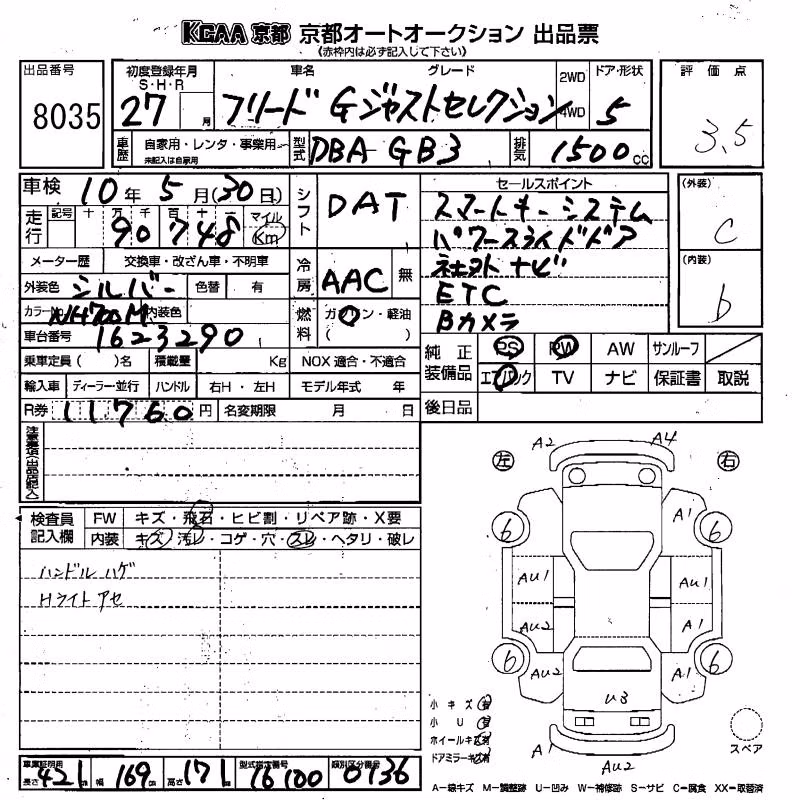 KCAA 京都 京都オートオークション 出品票
《赤枠内は必ず記入して下さい》
出品番号 8035
初度登録年月 S・H・R 27 月
車名 グレード フリード Gジャストセレクション
2WD 4WD
ドア・形状 5
評価点 3.5
車歴 自家用・レンタ・事業用 未記入は自家用
型式 DBA-GB3
排気 1500cc
車検 10年5月(30日)
シフト DAT
セールスポイント
スマートキーシステム
パワースライドドア
社外ナビ
ETC
Bカメラ
(外装) C
(内装) b
走行 記号 十 万 千 百 十 一 マイル Km
90748
メーター歴 交換車・改ざん車・不明車
冷房 AAC 無
外装色 シルバー 色替 有
カラーNo. NH700M 内装色
燃料 ガソリン・軽油 ( )
車台番号 1623290
乗車定員( )名 積載量 Kg NOX適合・不適合
輸入車 ディーラー・並行 ハンドル 右H・左H モデル年式 年
純正装備品 PS PW AW サンルーフ
エアバック TV ナビ 保証書 取説
R券 11760円 名変期限 月 日
後日品
注意事項(出品店記入)
検査員記入欄 FW キズ・飛石・ヒビ割・リペア跡・X要
内装 キズ・汚レ・コゲ・穴・スレ・ヘタリ・破レ
ハンドルハゲ
Hライトアセ
左 右
A2 A4
6 A1 6
AU1 AU1
AU2 A1
6 AU2 A1 6
U3
A1 AU2
小キズ有
小U有
ホイールキズ有
ドアミラーキズ有
スペア
車庫証明用 長さ 421 幅 169 高さ 171 型式指定番号 16100 類別区分番号 0736
A−線キズ M−調整跡 U−凹み W−補修跡 S−サビ C−腐食 XX−取替済